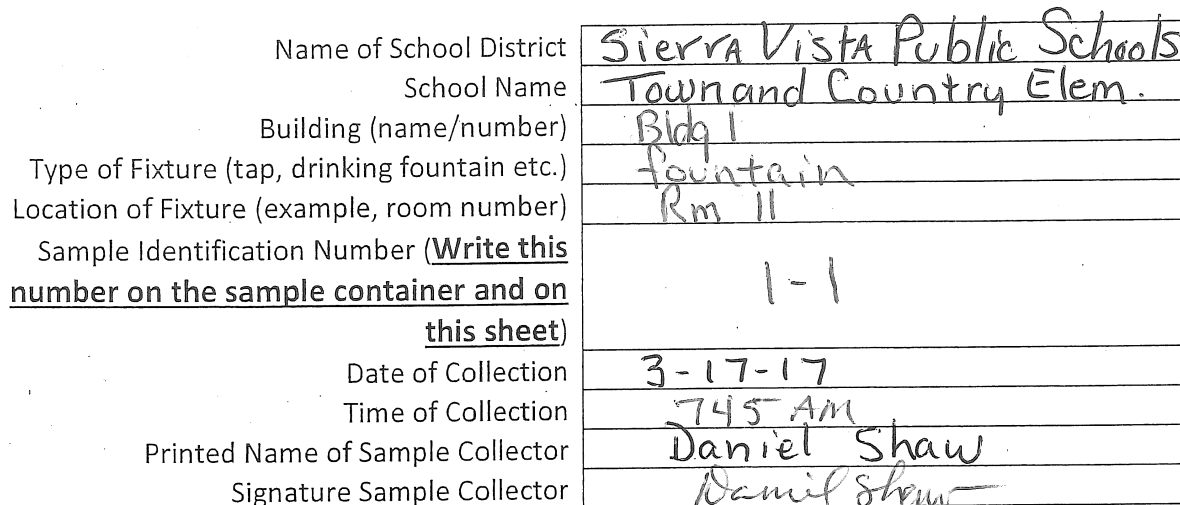 Name of School District Sierra Vista Public Schools
School Name Town and Country Elem.
Building (name/number) Bldg 1
Type of Fixture (tap, drinking fountain etc.) fountain
Location of Fixture (example, room number) Rm 11
Sample Identification Number (Write this
number on the sample container and on 1-1
this sheet)
Date of Collection 3-17-17
Time of Collection 745 AM
Printed Name of Sample Collector Daniel Shaw
Signature Sample Collector Daniel Shaw